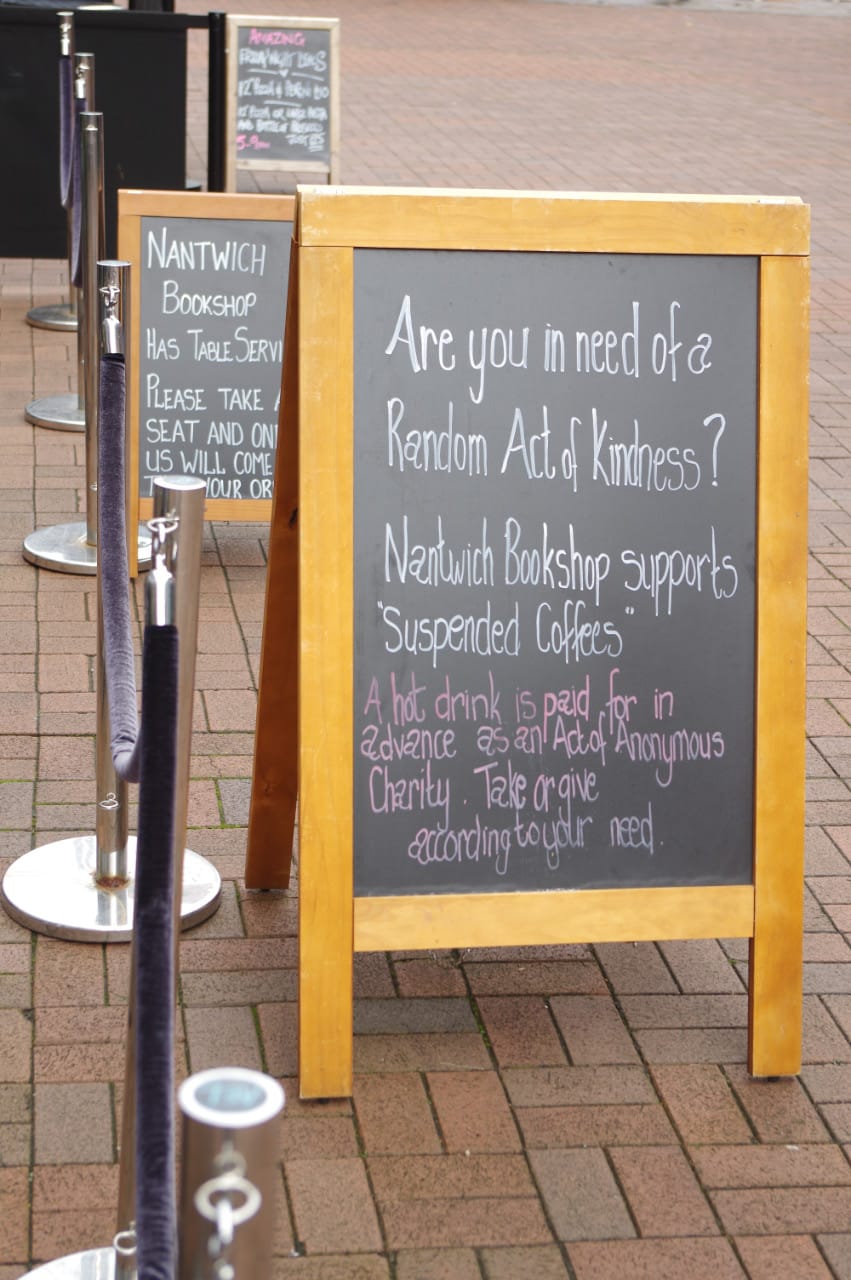 AMAZING
FRIDAY NIGHT DEALS
5-9pm
NANTWICH
BOOKSHOP
HAS TABLE SERVI
PLEASE TAKE A
SEAT AND ON
US WILL COME
YOUR OR
Are you in need of a
Random Act of Kindness?
Nantwich Bookshop supports
"Suspended Coffees"
A hot drink is paid for in
advance as an Act of Anonymous
Charity. Take or give
according to your need.